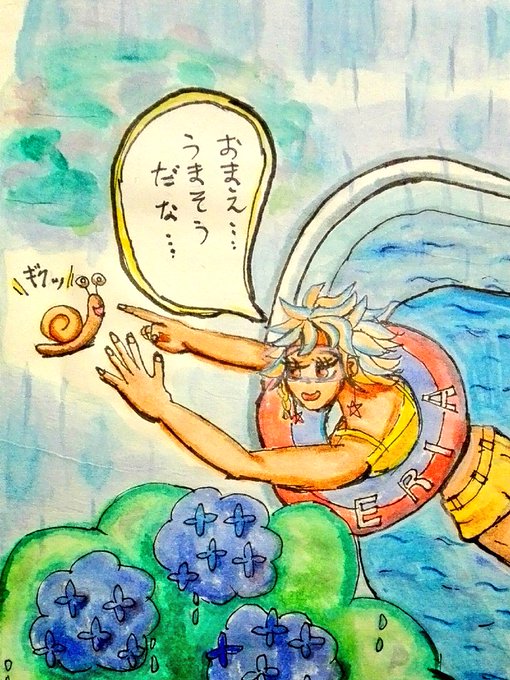 おまえ…
うまそう
だな…
ギクッ
ERIA